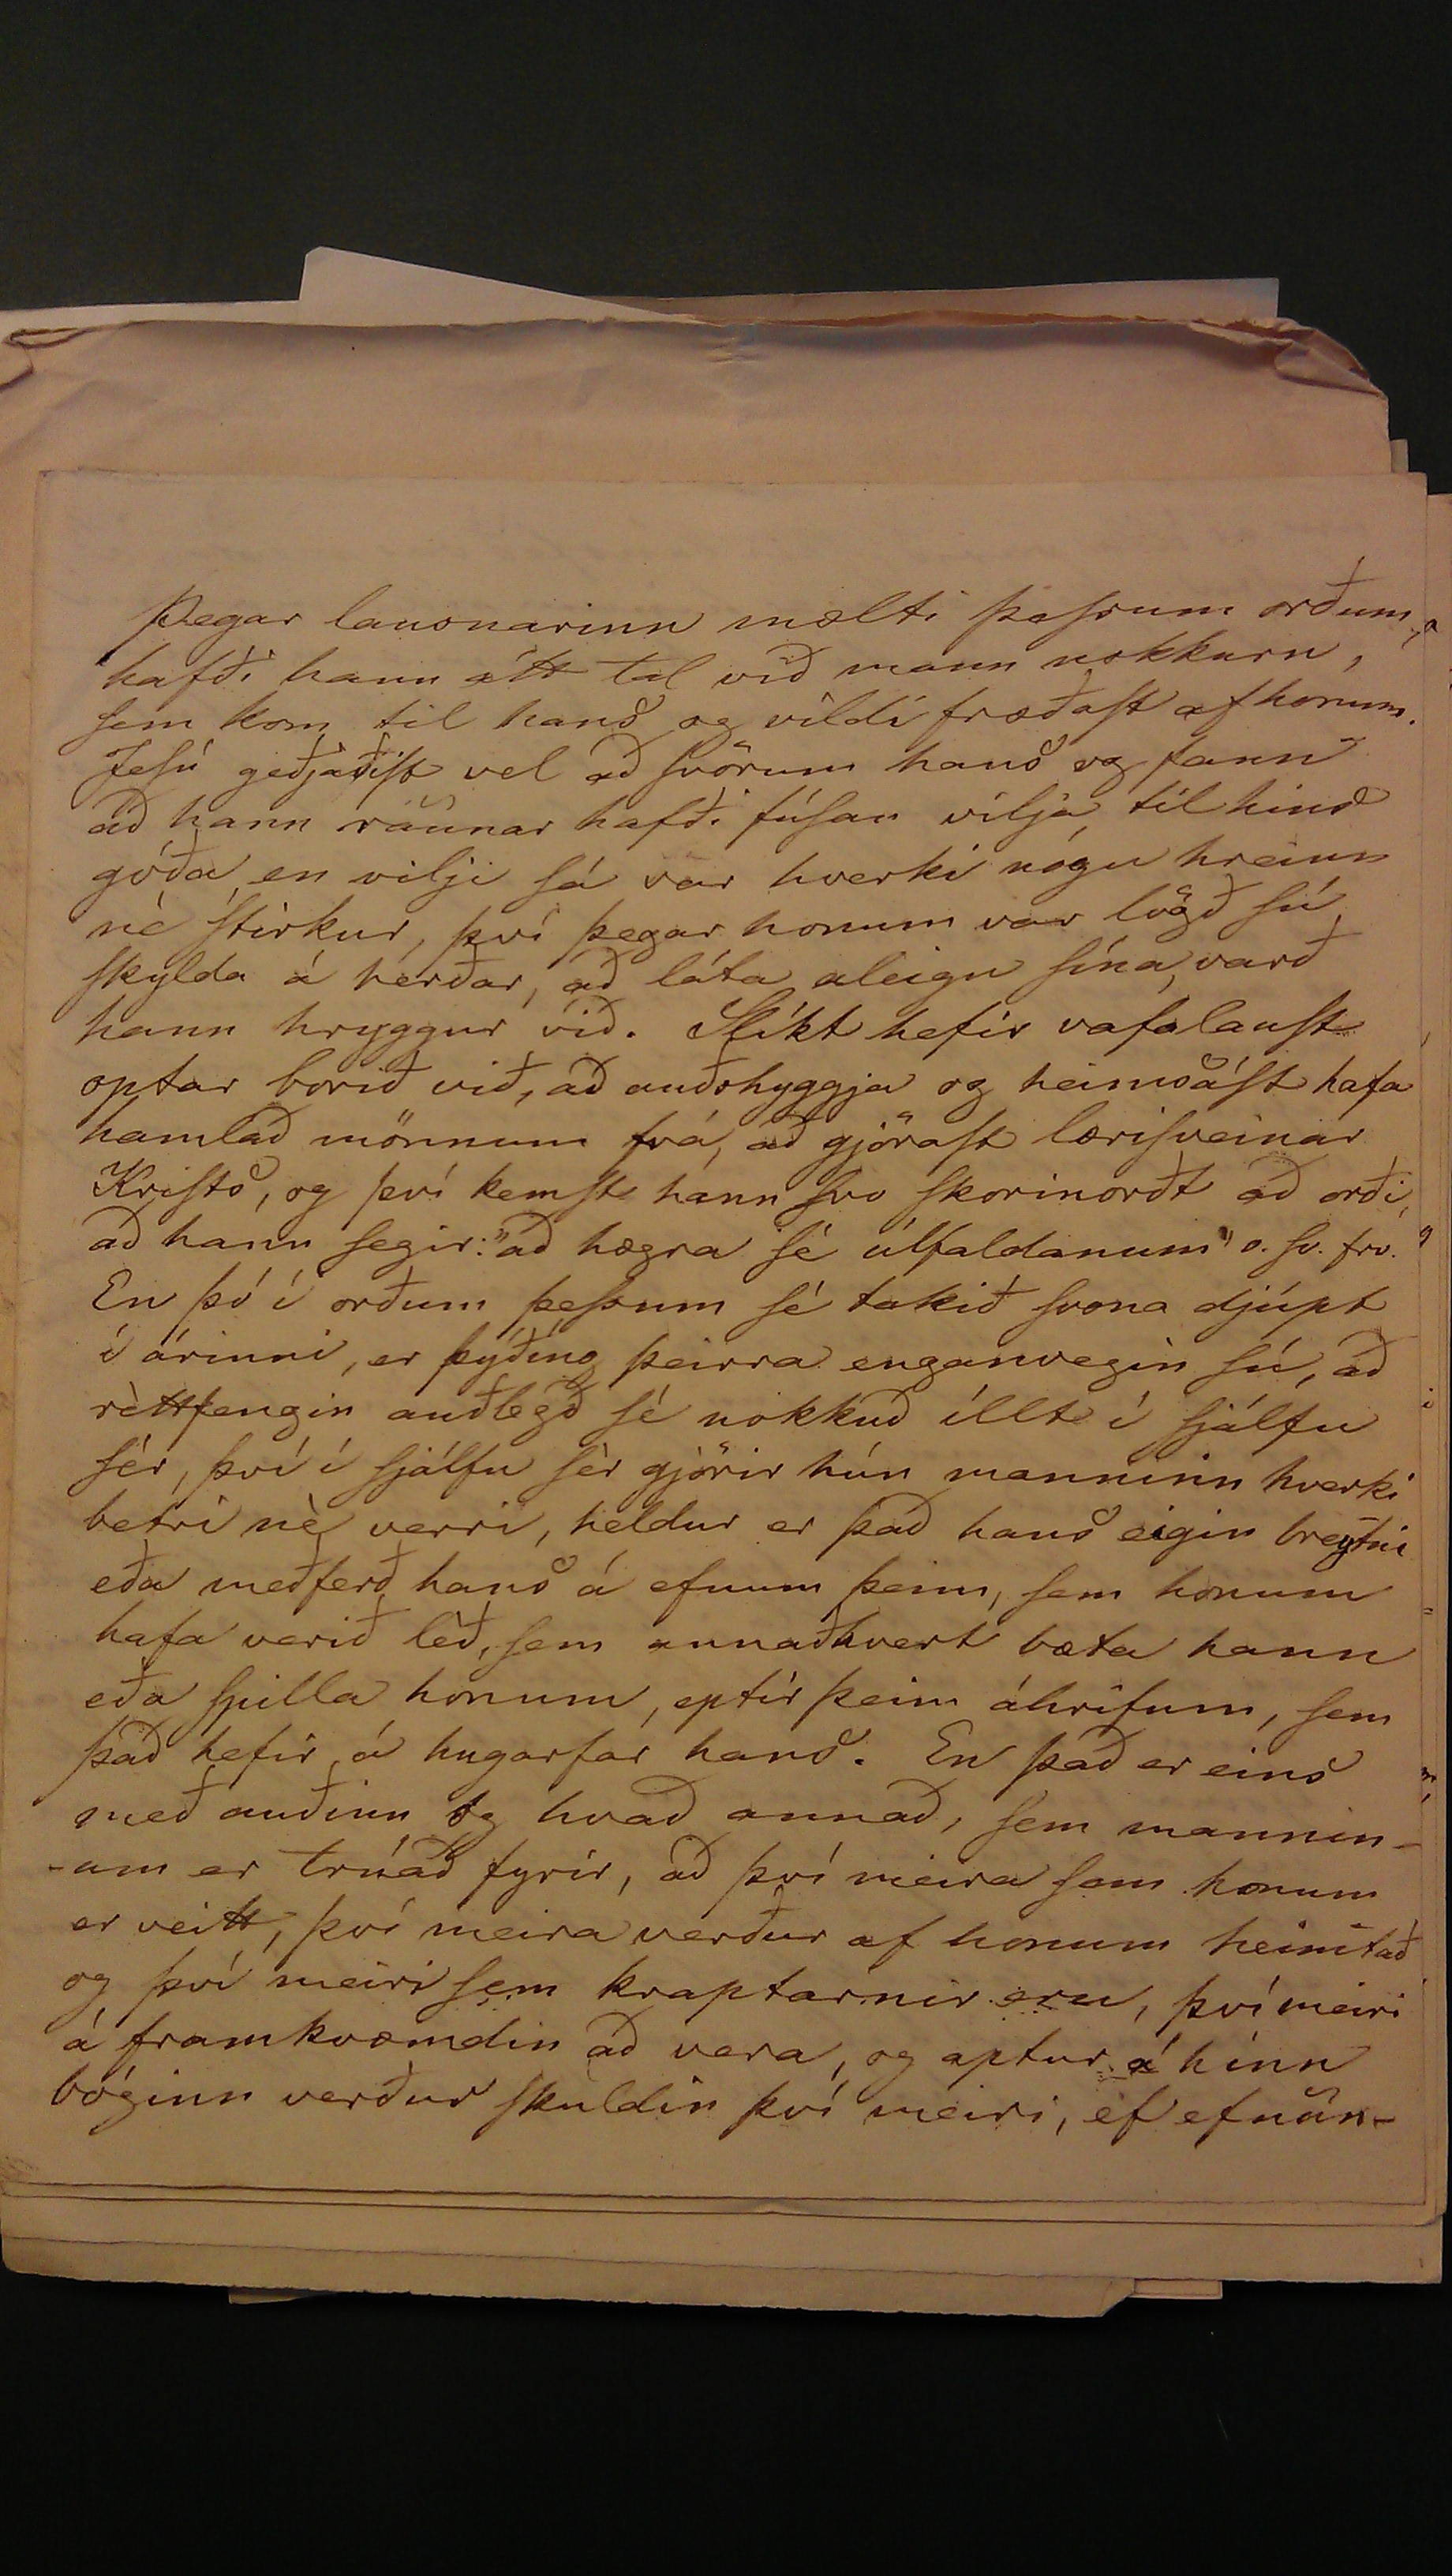 Þegar lausnarinn mælti þessum orðum,
hafði hann átt tal við mann nokkurn,
sem kom til hans og vildi fræðast af honum.
Jesú geðjaðist vel að svörum hans og fann
að hann raunar hafði fúsan vilja til hins
góða, en vilji sá var hverki nógu hreinn
nè stirkur, því þegar honum var lögð sú
skylda á herðar, að láta aleigu sína, varð
hann hryggur við. Slíkt hefir vafalaust
optar borið við, að auðshyggja og heimsást hafa
hamlað mönnum frá, að gjörast lærisveinar
Krists, og því kemst hann svo skorinorðt að orði,
að hann segir: "að hægra sé úlfaldanum" o. sv. frv.
En þó í orðum þessum sé tekið svona djúpt
í árinni, er þýðíng þeirra enganvegin sú, að
rèttfengin auðlegð sé nokkuð íllt í sjálfu
sér, því í sjálfu sèr gjörir hún manninn hverki
betri nè verri, heldur er það hans eigin breytni
eða meðferð hans á efnum þeim, sem honum
hafa verið léð, sem annaðhvert bæta hann
eða spilla honum, eptir þeim áhrifum, sem
það hefir á hugarfar hans. En það er eins
með auðinn og hvað annað, sem mannin-
-um er trúað fyrir, að því meira sem honum
er veitt, því meira verður af honum heimtað
og því meiri sem kraptarnir eru, því meiri
á framkvæmdin að vera, og aptur á hinn
bóginn verður skuldin því meiri, ef efnún-